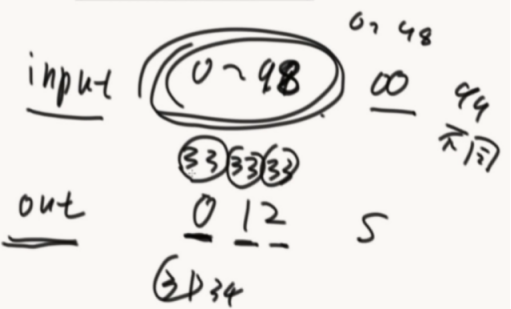 0~48
input 0~98 00 99
不同
33 33 33
out 0 1 2 S
31 34